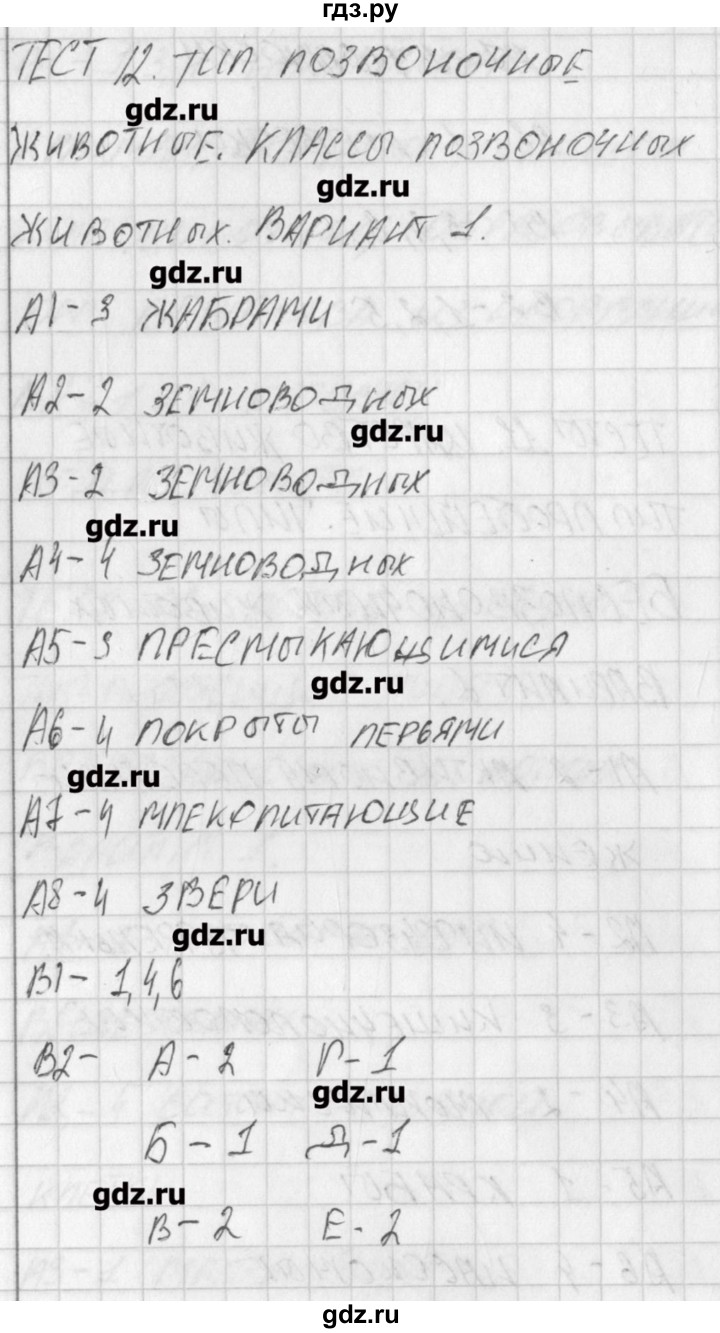 гдз.ру
ТЕСТ 12. ТИП ПОЗВОНОЧНЫЕ
gdz.ru
ЖИВОТНЫЕ. КЛАССЫ ПОЗВОНОЧНЫХ
gdz.ru
ЖИВОТНЫХ. ВАРИАНТ 1.
gdz.ru
А1-3 ЖАБРАМИ
А2-2 ЗЕМНОВОДНЫХ
gdz.ru
А3-2 ЗЕМНОВОДНЫХ
gdz.ru
А4-4 ЗЕМНОВОДНЫХ
А5-3 ПРЕСМЫКАЮЩИМИСЯ
gdz.ru
А6-4 ПОКРЫТЫ ПЕРЬЯМИ
gdz.ru
А7-4 МЛЕКОПИТАЮЩИЕ
А8-4 ЗВЕРИ
gdz.ru
В1- 1,4,6
В2- А-2 Г-1
gdz.ru
Б-1 Д-1
gdz.ru
В-2 Е-2
gdz.ru